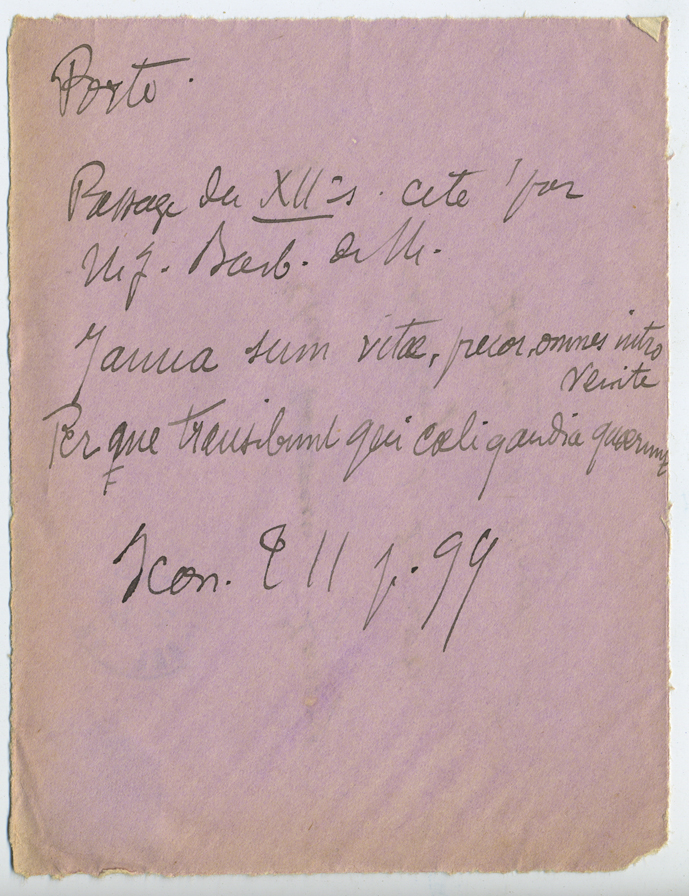 Porte.
Passage du XII e s. cité par
Mgr. Barb. de M.
Janua sum vitæ, precor, omnes intro
venite
Per que transibunt qui cœli gaudia quærunt
Icon. T II p. 99